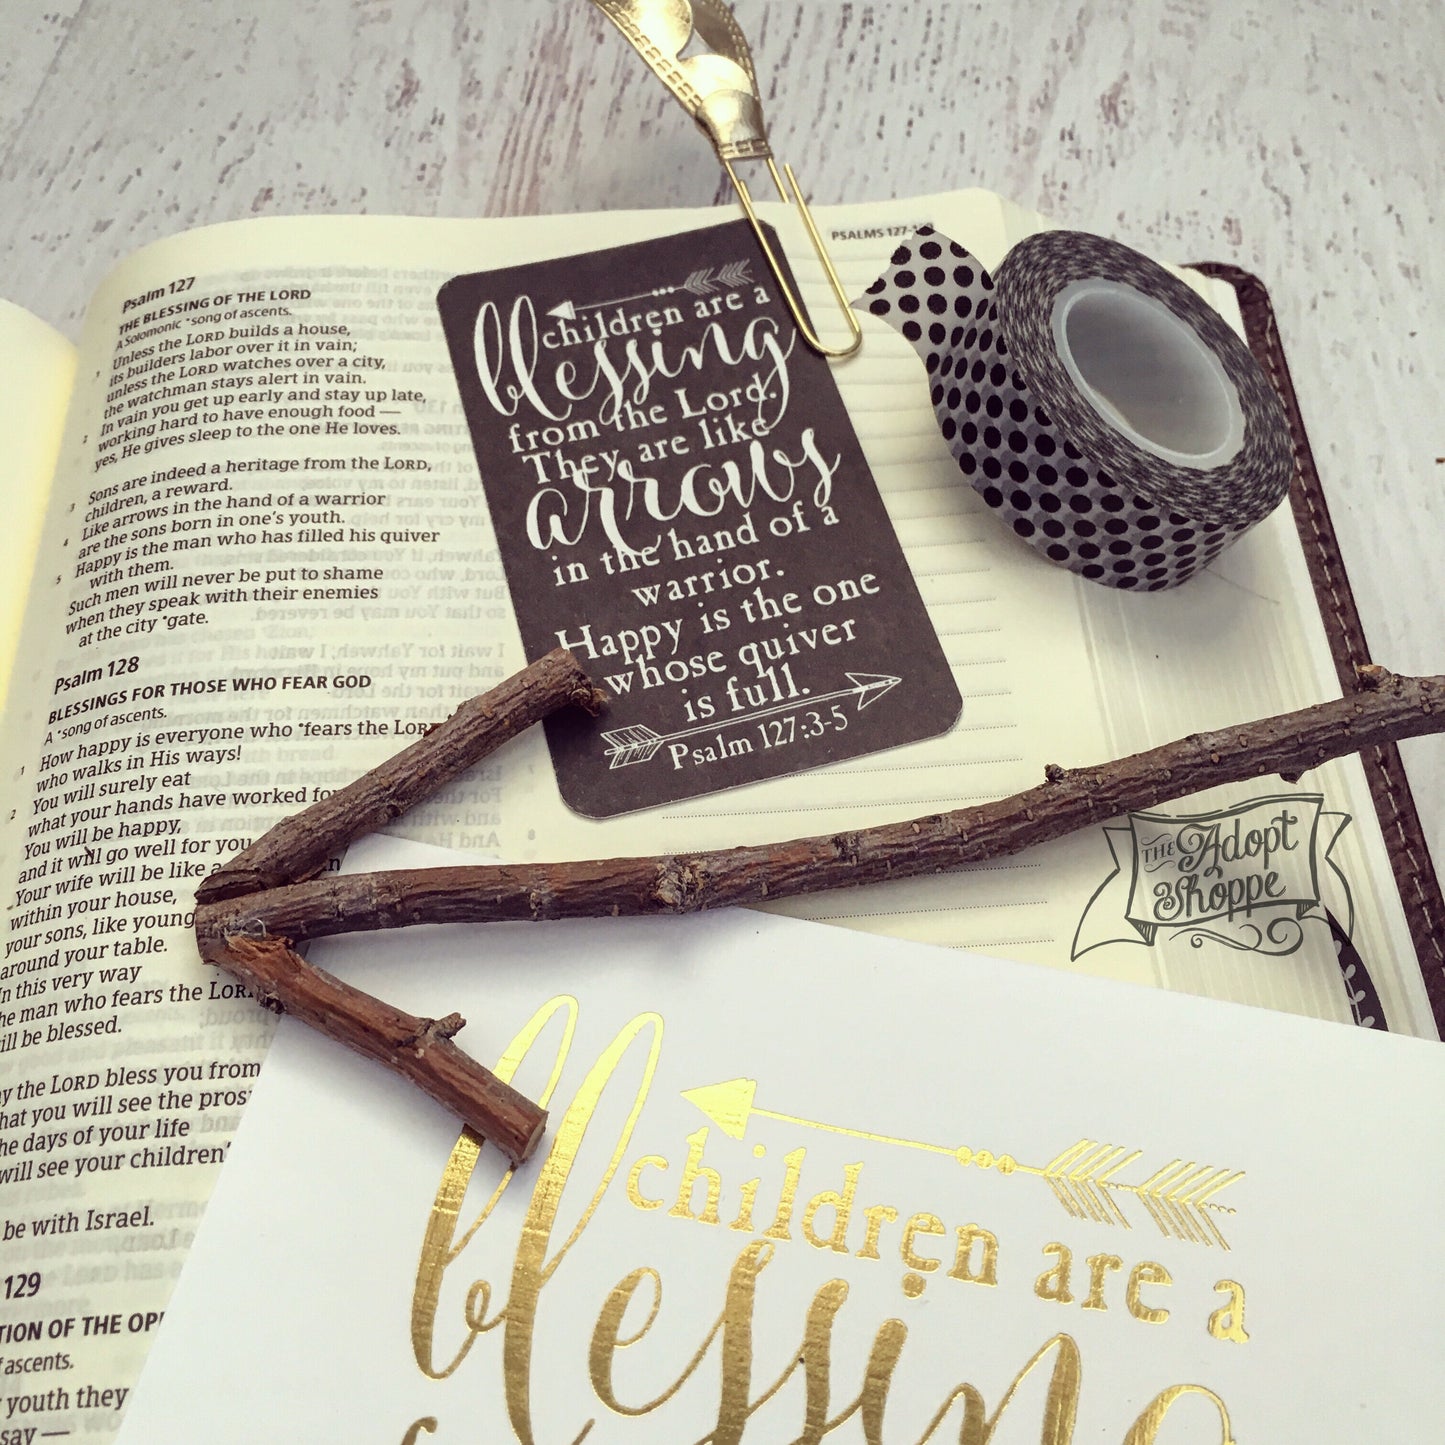 PSALMS 127-1
Psalm 127
THE BLESSING OF THE LORD
A Solomonic *song of ascents.
1 Unless the LORD builds a house,
its builders labor over it in vain;
unless the LORD watches over a city,
the watchman stays alert in vain.
2 In vain you get up early and stay up late,
working hard to have enough food —
yes, He gives sleep to the one He loves.
3 Sons are indeed a heritage from the LORD,
children, a reward.
4 Like arrows in the hand of a warrior
are the sons born in one's youth.
5 Happy is the man who has filled his quiver
with them.
Such men will never be put to shame
when they speak with their enemies
at the city *gate.
Psalm 128
BLESSINGS FOR THOSE WHO FEAR GOD
A *song of ascents.
1 How happy is everyone who *fears the LORD
who walks in His ways!
2 You will surely eat
what your hands have worked for
You will be happy,
and it will go well for you
Your wife will be like a
within your house,
your sons, like young
around your table.
In this very way
he man who fears the LORD
ill be blessed.
ay the LORD bless you from
hat you will see the pros
he days of your life
will see your children'
be with Israel.
129
TION OF THE OP
f ascents.
youth they
say —
children are a
blessing
from the Lord.
They are like
arrows
in the hand of a
warrior.
Happy is the one
whose quiver
is full.
Psalm 127:3-5
THE Adopt
Shoppe
children are a
blessing